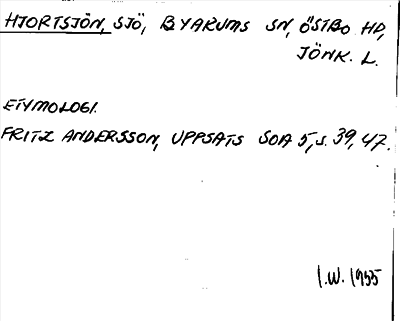 HJORTSJÖN, SJÖ, BYARUMS SN, ÖSTBO HD,
JÖNK. L.
ETYMOLOGI.
FRITZ ANDERSSON, UPPSATS SOA 5, s. 39, 47.
I.W. 1955